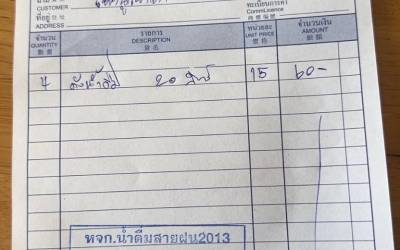 CUSTOMER
ที่อยู่
ADDRESS
ทะเบียนการค้า
Comm.Licence
จำนวน
QUANTITY
數量
รายการ
DESCRIPTION
貨名
หน่วยละ
UNIT PRICE
價格
จำนวนเงิน
AMOUNT
銀額
4 ถังน้ำดื่ม 20 ลิตร 15 60-
หจก.น้ำดื่มสายฝน2013